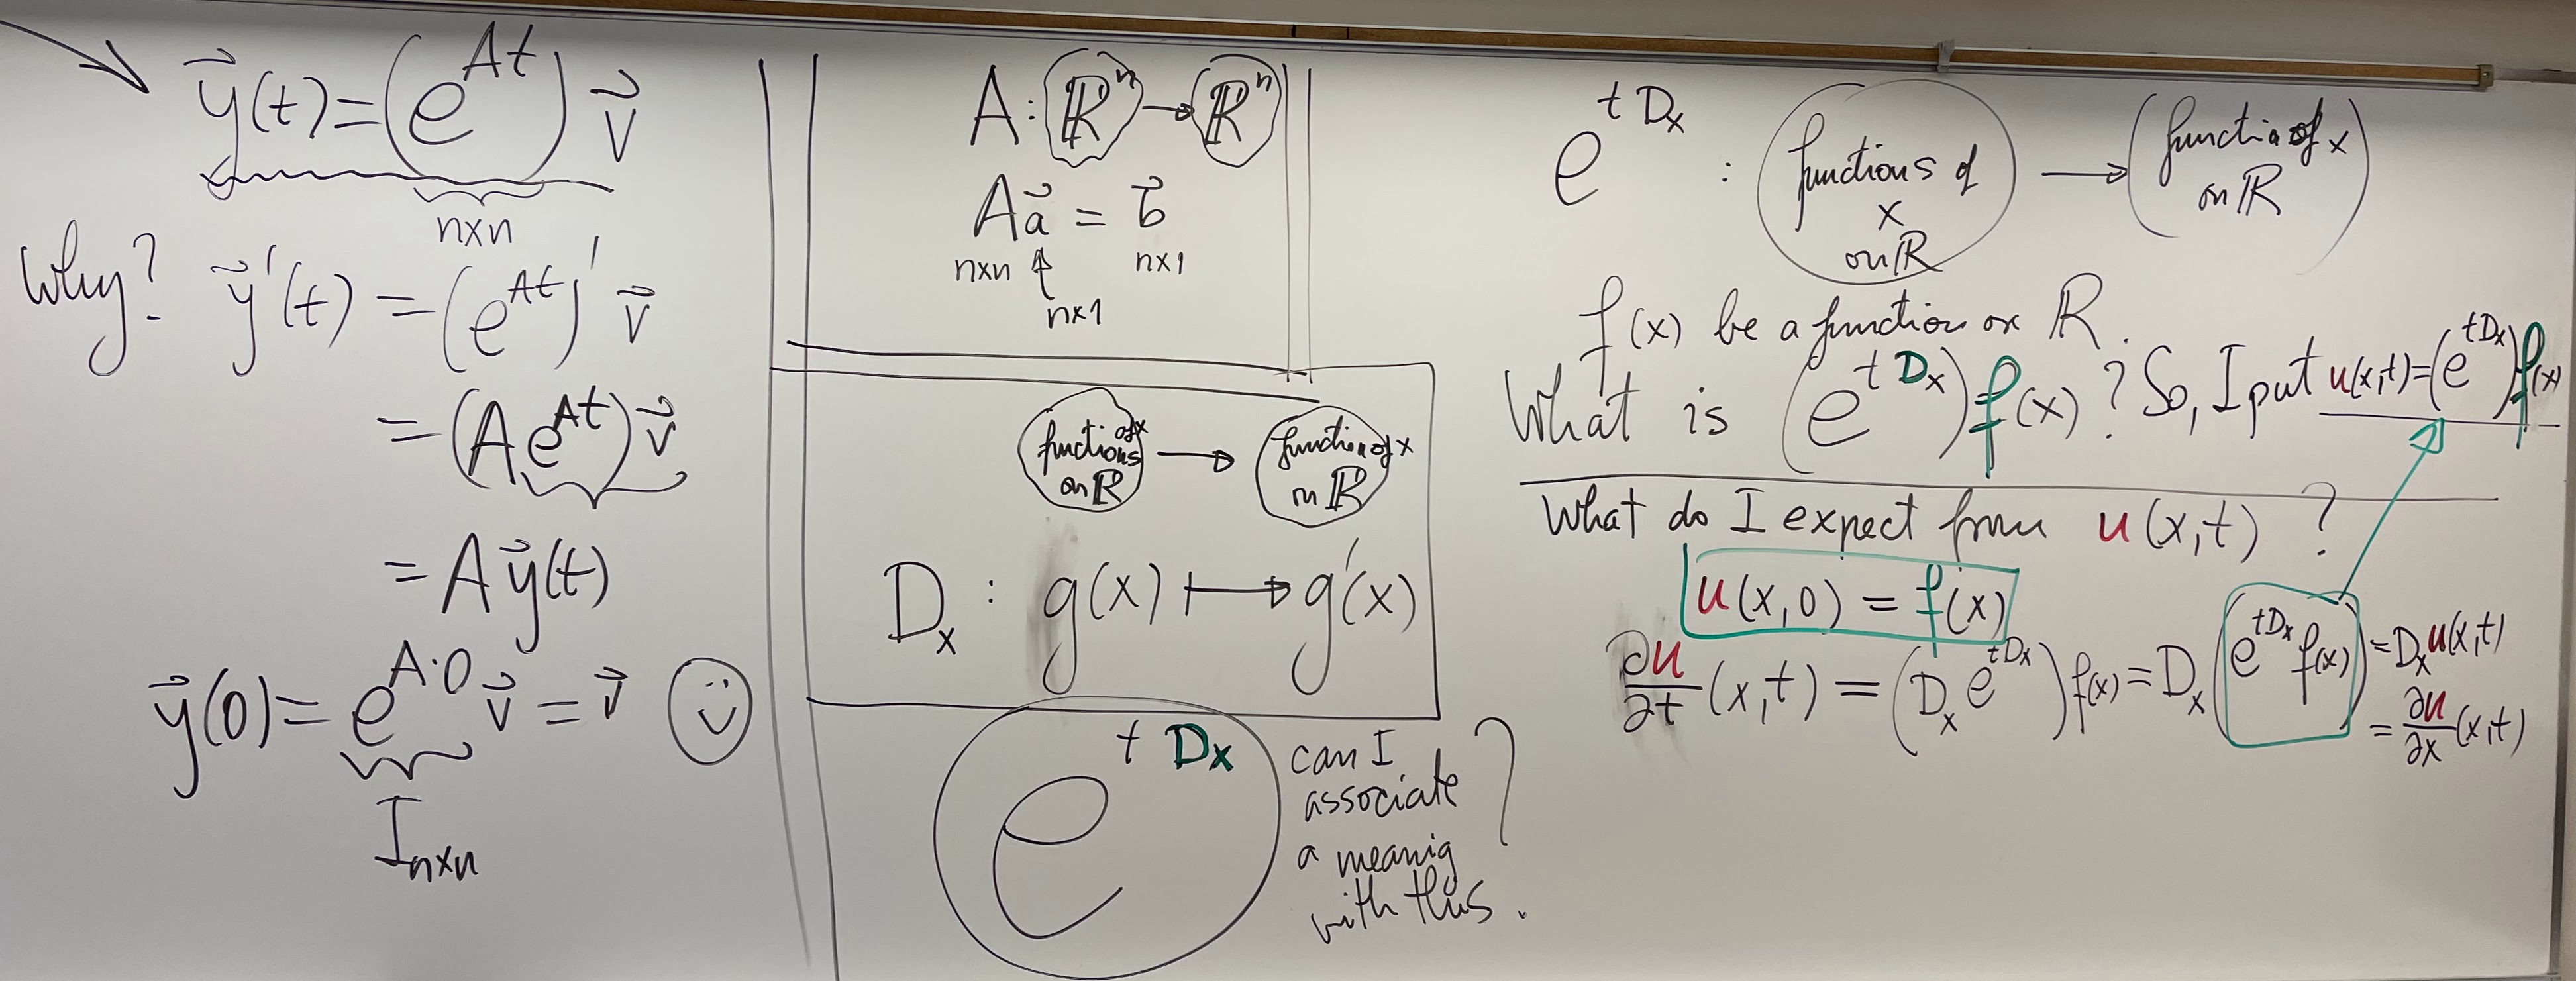 y⃗(t) = (e^{At}) v⃗
n×n
Why? y⃗'(t) = (e^{At})' v⃗
= (A e^{At}) v⃗
= A y⃗(t)
y⃗(0) = e^{A·0} v⃗ = v⃗
I_{n×n}
A: ℝ^n → ℝ^n
A a⃗ = b⃗
n×n n×1
n×1
functions of x on ℝ → function of x on ℝ
D_x : g(x) ↦ g'(x)
e^{t D_x} can I
associate
a meanig
with this. ?
e^{t D_x} : functions of x on ℝ → (function of x on ℝ)
f(x) be a function on ℝ.
What is (e^{t D_x}) f(x) ? So, I put u(x,t) = (e^{t D_x}) f(x)
What do I expect from u(x,t) ?
u(x,0) = f(x)
∂u/∂t (x,t) = (D_x e^{t D_x}) f(x) = D_x (e^{t D_x} f(x)) = D_x u(x,t)
= ∂u/∂x (x,t)